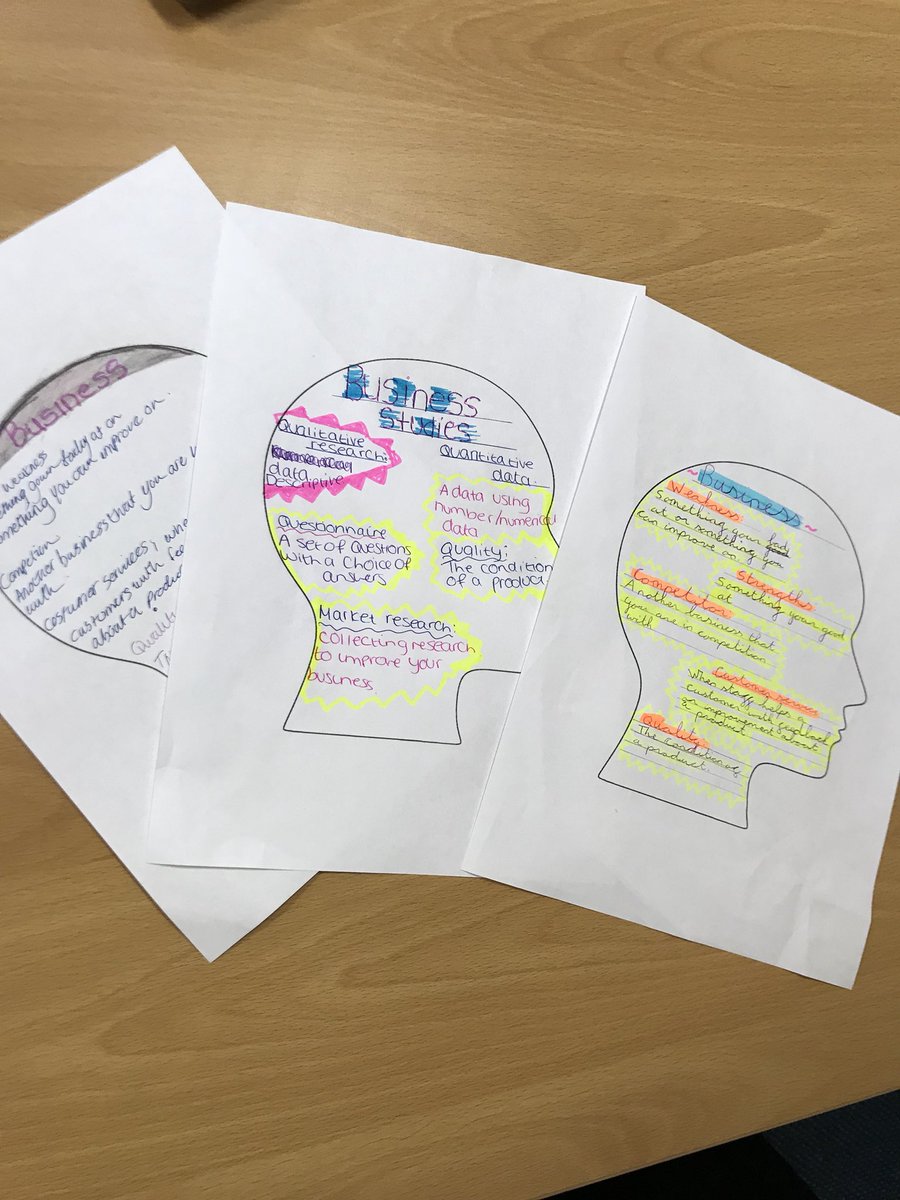 Business
weakness
something your faily at on
something you can improve on.
Competion
Another business that you are
with.
costumer services; whe
customers with fee
about a produc
Qualit
Business
Studies
Qualitative
research:
data
Descriptive
Quantitative
data.
A data using
number/numerical
data
Questionnaire
A set of questions
with a choice of
answers
Quality;
The condition
of a product
Market research:
collecting research
to improve your
business.
~Business~
Weakness:
Something your bad
at or something you
can improve on
Strengths
Something your good
at
Competitor
Another business that
you are in competition
with
Customer service
When staff helps a
customer with feedback
or improvement about
a product
Quality
The condition of
a product.